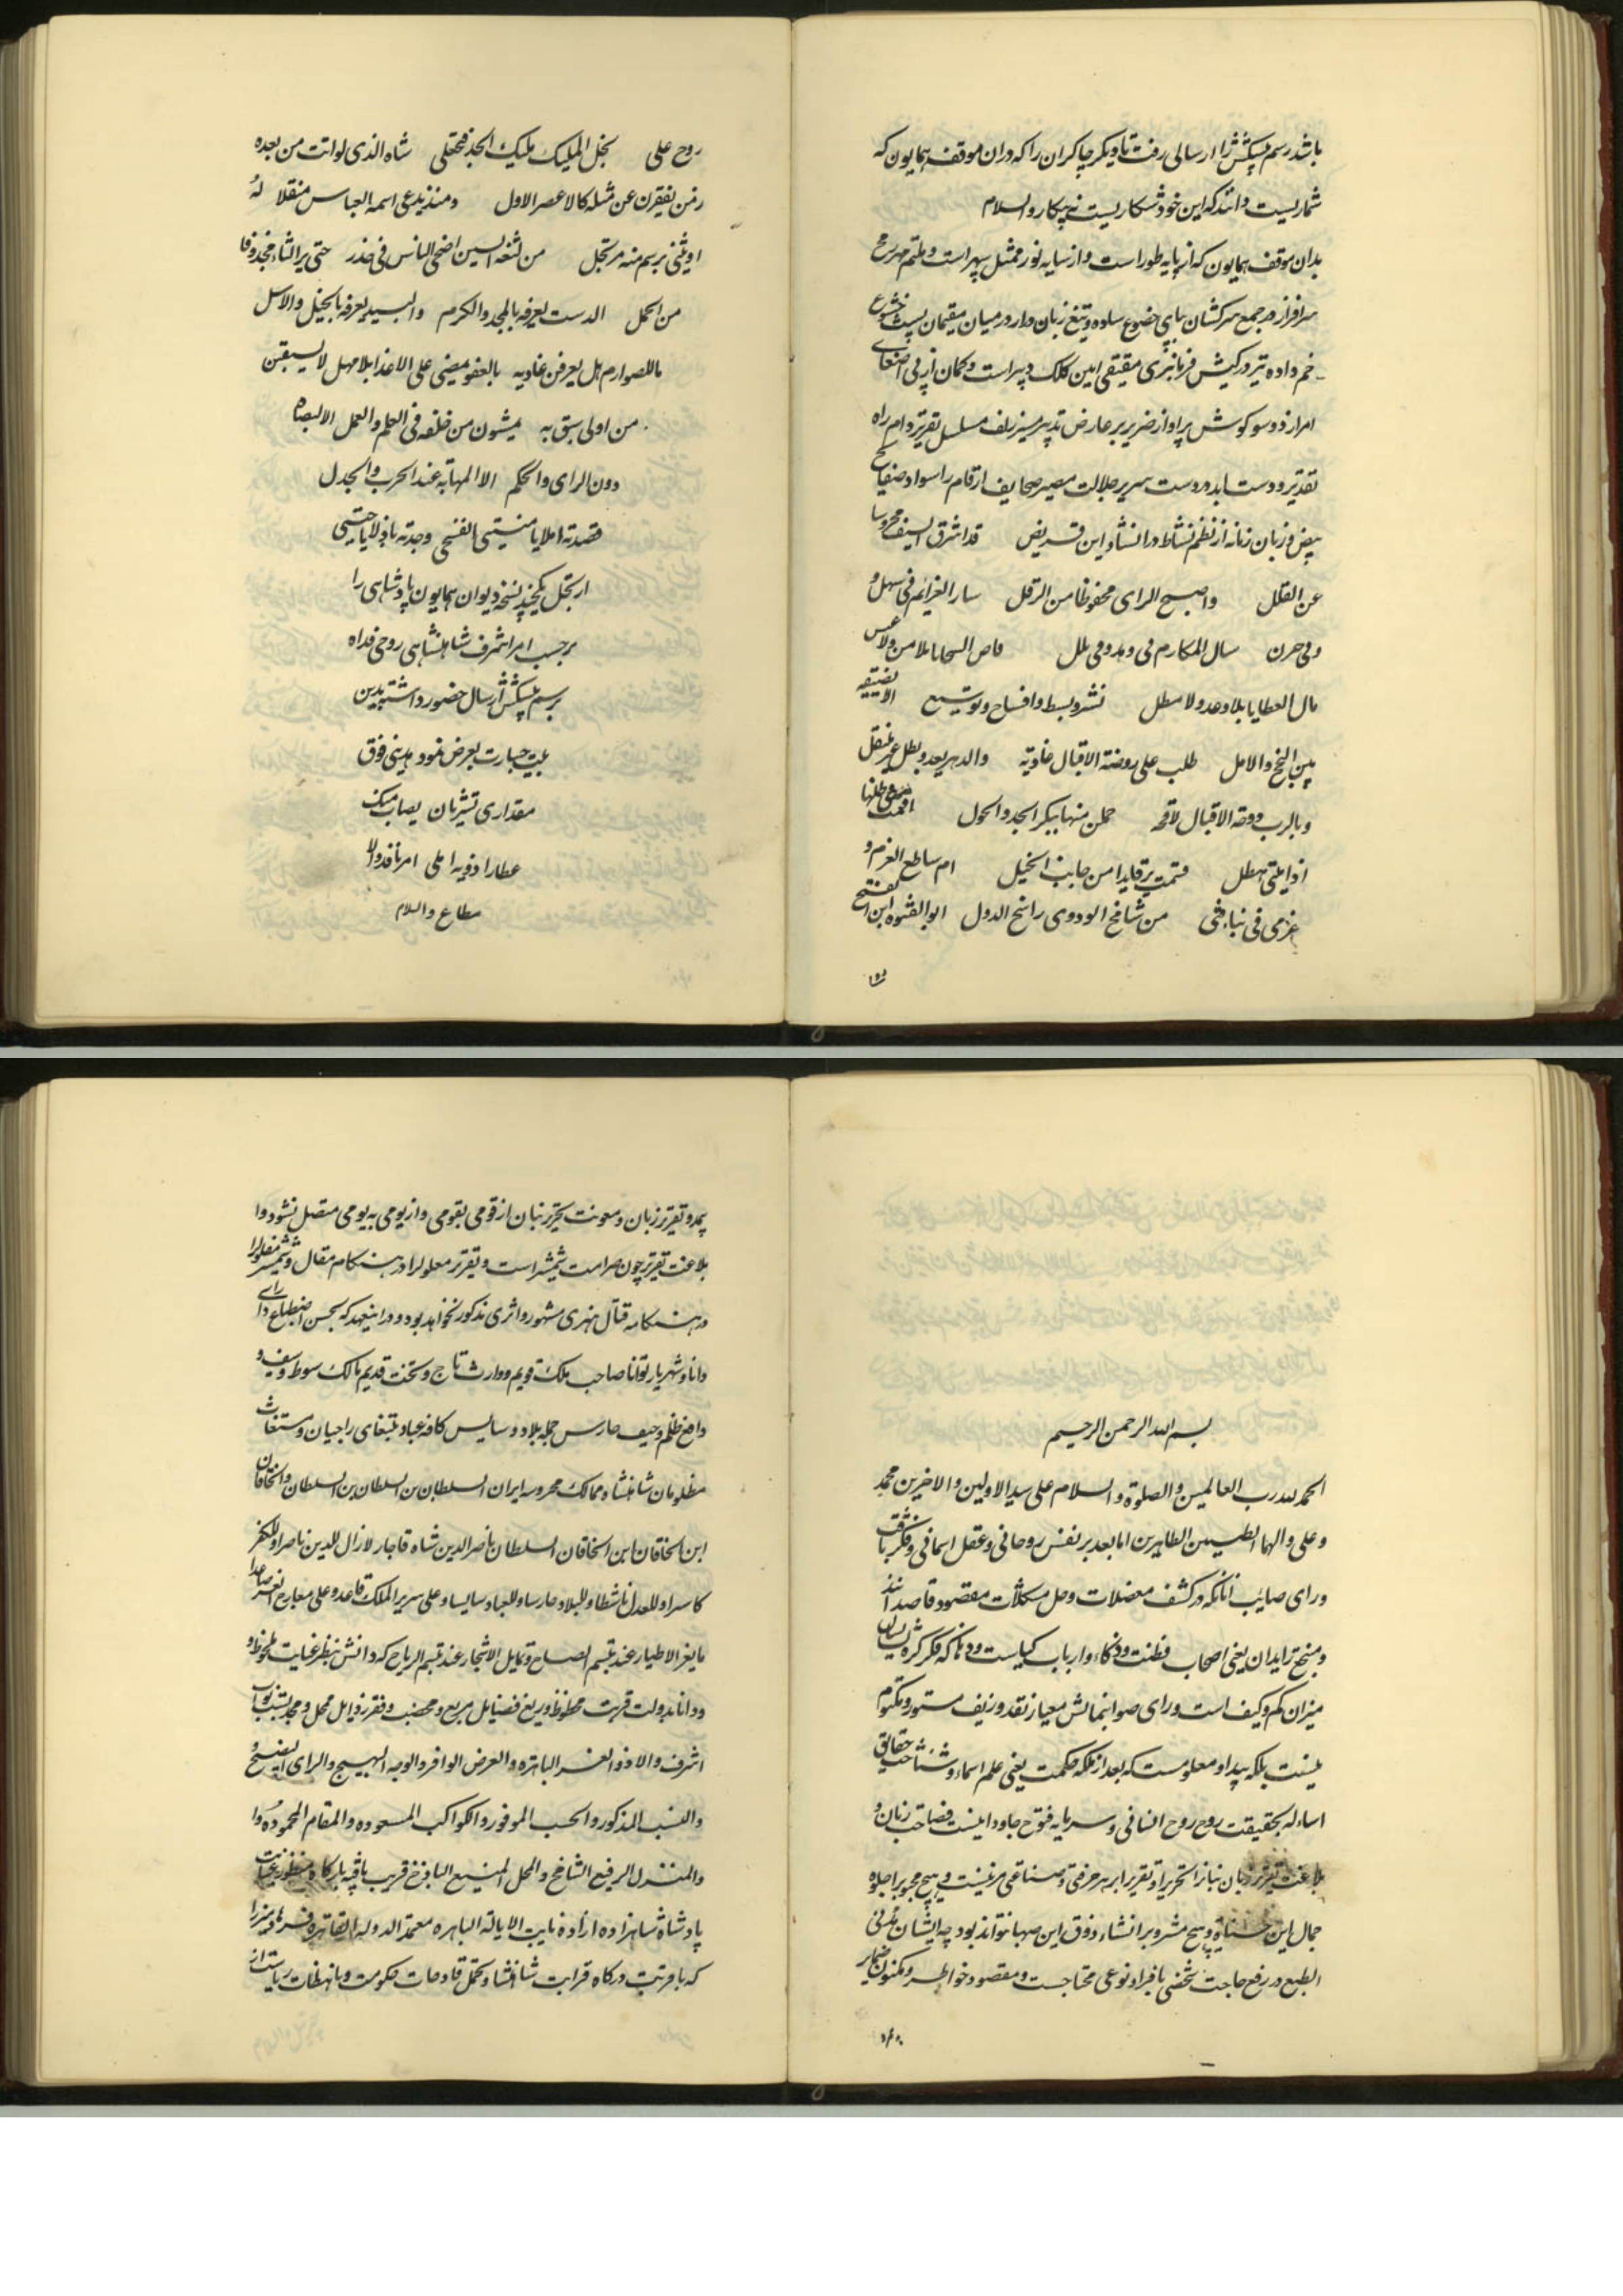 باشد رسم پیشکش را ارسالی رفت تا دیگر چاکران را که در آن موقف همایون که
شماریست دانند که این خود شکاریست نه پیکار والسلام
بدان موقف همایون که از پایه طور است و از سایه نور ممثل سپهر است و ملثم مهر رمح
سرافراز در جمع سرکشان بپای خضوع ساده و تیغ زبان دار در میان مقیمان پشت خشوع
خم داده تیر در کیش فرمانبری مقیقی امین کلک دبیر است و کمان از پی اصغای
امرار ذو سو کوش بر آواز ضریر بر عارض تدبیر سیر زلف مسلسل تقریر دام راه
تقدیر و دست ابد و دست سریر جلالت مصیر صحایف ارقام را سواد صفایح
بیض و زبان زمانه از نظم نشاط در انشاد این قریض قد اشرق السیف محروسا
عن الفلل واصبح الرای محفوظا من الزلل سار العزائم فی سهل و
وفی حزن سال المکارم فی وهد وفی تلل فاض السحایا بلا من ولا عبس
مال العطایا بلا وعد ولا مطل نشر وبسط وافساح وتوسیع الا یضیقه
بین النجح والامل طلب علی روضة الاقبال غادیة والدهر یعد وبطل غیر منتقل
وبالرب دوحة الاقبال لاقحة حملن منها بیکر الجد والحول
اذا یلتی هطل ام ساطع العزم و
عزمی فی من شامخ الود وی راسخ الدول ابو الفتوه ابن الفتح
روح علی نجل الملیک ملیک الجد فحقلی شاه الذی لو اتت من بعده
زمن یفقرن عن مثله کالاعصر الاول ومنذ یدعی اسمه العباس منقلا له
او یثنی برسم منه مرتجل من لثغه السین اضحی الناس فی حذر حتی یر الثاء مجذوفا
من الحمل الدست یعرفه بالمجد والکرم والبید یعرفه بالخیل والاسل
ماللصوارم هل یعرفن غادیه بالعفو یمضی علی الاعدا بلا مهل لا یسبقن
من اولی سبق به یمشون من خلفه فی العلم والعمل الا البصاه
دون الرای والحکم الا المهابه عند الحرب والجدل
قصدته املا یا منیتی الفنی وجدته باذلا یا جیتی
ارتجل یکچند نسخه دیوان همایون پادشاهی را
برحسب امر اشرف شاهنشاهی روحی فداه
برسم پیشکش ارسال حضور داشت بدین
بیت جسارت بعرض نمود هدیتی فوق
مقداری تشیر بان یصاب مسک
عطارا ذویه املی امر نافذ والا
مطاع والسلام
بسم الله الرحمن الرحیم
الحمد لله رب العالمین والصلوة والسلام علی سید الاولین والاخرین محمد
وعلی والهما الطیبین الطاهرین اما بعد بر نفس روحانی و عقل اسمانی و فکر ثاقب
و رای صایب انانکه در کشف معضلات و حل مشکلات مقصود قاصدانند
و منتج زایدان یعنی اصحاب فطنت و ذکاء و ارباب کیاست و دها که فکر کره
میزان کم و کیف است و رای صواب نمایش معیار نقد و زیف مستور و مکتوم
نیست بلکه پیدا و معلومست که بعد از ملکه حکمت یعنی علم اسماء و شناخت حقایق
اساء له بحقیقت روح روح انسانی و سرمایه فتوح جاودانیست فصاحت زبان و
بلاغت تقریر زبان نیاز انحریر و تقریر ابر هر حرفتی و صناعتی مزیتیست و هیچ محبوبرا جلوه
جمال این حسنا نه و هیچ مشروبرا نشاء ذوق این صهبا نتواند بود چه ایشان مدنی
الطبع در رفع حاجت شخصی بافراد نوعی محتاجست و مقصود خواطر و مکنون ضمایر
بمدد تقریر زبان و معونت تحریر بنان از قومی بقومی و از یومی به یومی متصل نشود و ا
بلاغت تقریر چون صرامت شمشیر است و تقریر معلولرا در هنگام مقال و شمشیر مفلولرا
در هنگامه قتال هنری مشهور و اثری مذکور نخواهد بود و در اینعهد که بحسن اصطناع رای
دانا و شهریار توانا صاحب ملک قویم و وارث تاج و تخت قدیم مالک سوط و سیف و
دافع ظلم و حیف حارس جمله بلاد و سایس کافه عباد مبتغای راجیان و مستغاث
مظلومان شاهنشاه ممالک محروسه ایران السلطان بن السلطان بن السلطان والخاقان
ابن الخاقان ابن الخاقان السلطان ناصرالدین شاه قاجار لازال للدین ناصرا وللکفر
کاسرا وللعدل ناشطا وللبلاد حارسا وللعباد سایسا وعلی سریر الملک قاعد وعلی معارج العز صاعدا
مایغر الاطیار عند تبسم الصباح وتمایل الاشجار عند تنسم الریاح که دانش بنظر عنایت ملحوظ و
و دانا بدولت قربت محظوظ و ریع فضایل مریع و مخضب و فقر رذایل ممحل و مجدب نواب
اشرف والا ذو العز الباتره والعرض الوافر والوجه البهیج والرای النضیج و
والنسب المذکور والحسب الموفور والکواکب المسعوده والمقام المحموده و
والمنزل الرفیع الشامخ والمحل المنیع الباذخ قریب باقربه بارکاه و منظور عنایت
پادشاه شاهزاده ازاده نایب الایالة الباهره معتمد الدوله القاهره فرهاد میرزا
که با مرتبت درکاه قرابت شاهنشاه و تحمل قادحات حکومت و با نهضات ریاست از